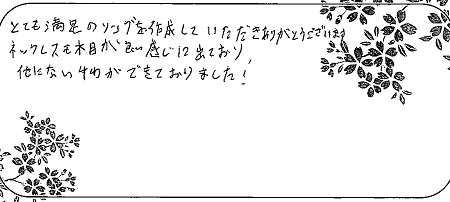 とても満足のリングを作成していただきありがとうございます
ネックレスも木目が良い感じに出ており、
他にない物ができておりました!